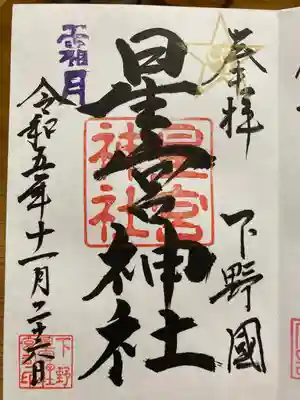 奉拝
下野國
星宮神社
星宮
神社
霜月
令和五年十一月二十六日
下野